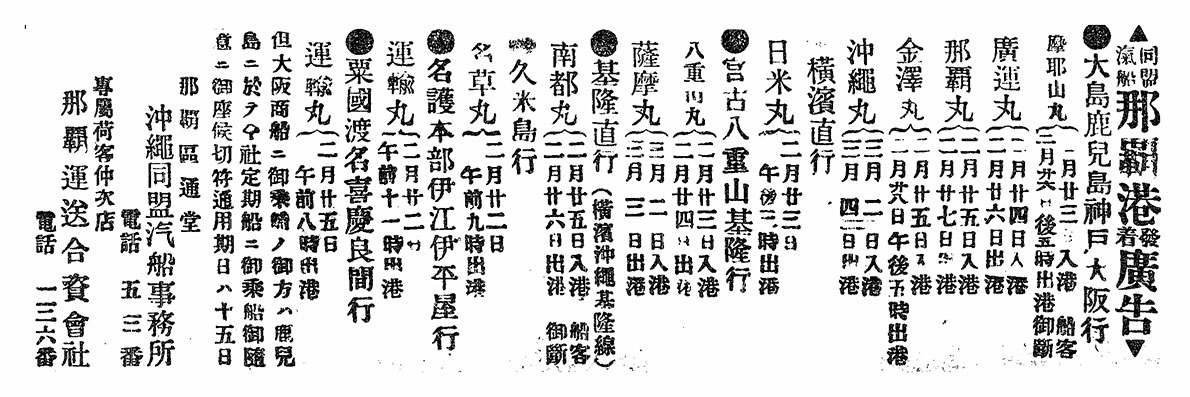 ▲同盟汽船那覇港發着廣告▼
●大島鹿兒島神戸大阪行
摩耶山丸 月廿三 入港 船客
二月廿六日後五時出港御斷
廣運丸 二月廿四日入港
二月廿六日出港
那覇丸 二月廿五日入港
二月廿七日出港
金澤丸 二月廿五日入港
二月廿八日午後五時出港
橫濱直行
沖繩丸 三月 二日入港
三月 四日出港
日米丸 二月廿三日
午後三時出港
●宮古八重山基隆行
八重山丸 二月廿三日入港
二月廿四日出港
薩摩丸 三月 二日入港
三月 三日出港
●基隆直行(橫濱沖繩基隆線)
南都丸 二月廿五日入港 船客
二月廿六日出港 御斷
久米島行
名草丸 二月廿二日
午前九時出港
●名護本部伊江伊平屋行
運輸丸 二月廿二日
午前十一時出港
●粟國渡名喜慶良間行
運輸丸 二月廿五日
午前八時出港
但大阪商船ニ御乘船ノ御方ハ鹿兒
島ニ於テ仝社定期船ニ御乘船御隨
意ニ御座候切符通用期日ハ十五日
那覇區通堂
沖繩同盟汽船事務所
電話 五三番
專屬荷客仲次店
那覇運送合資會社
電話 一三六番